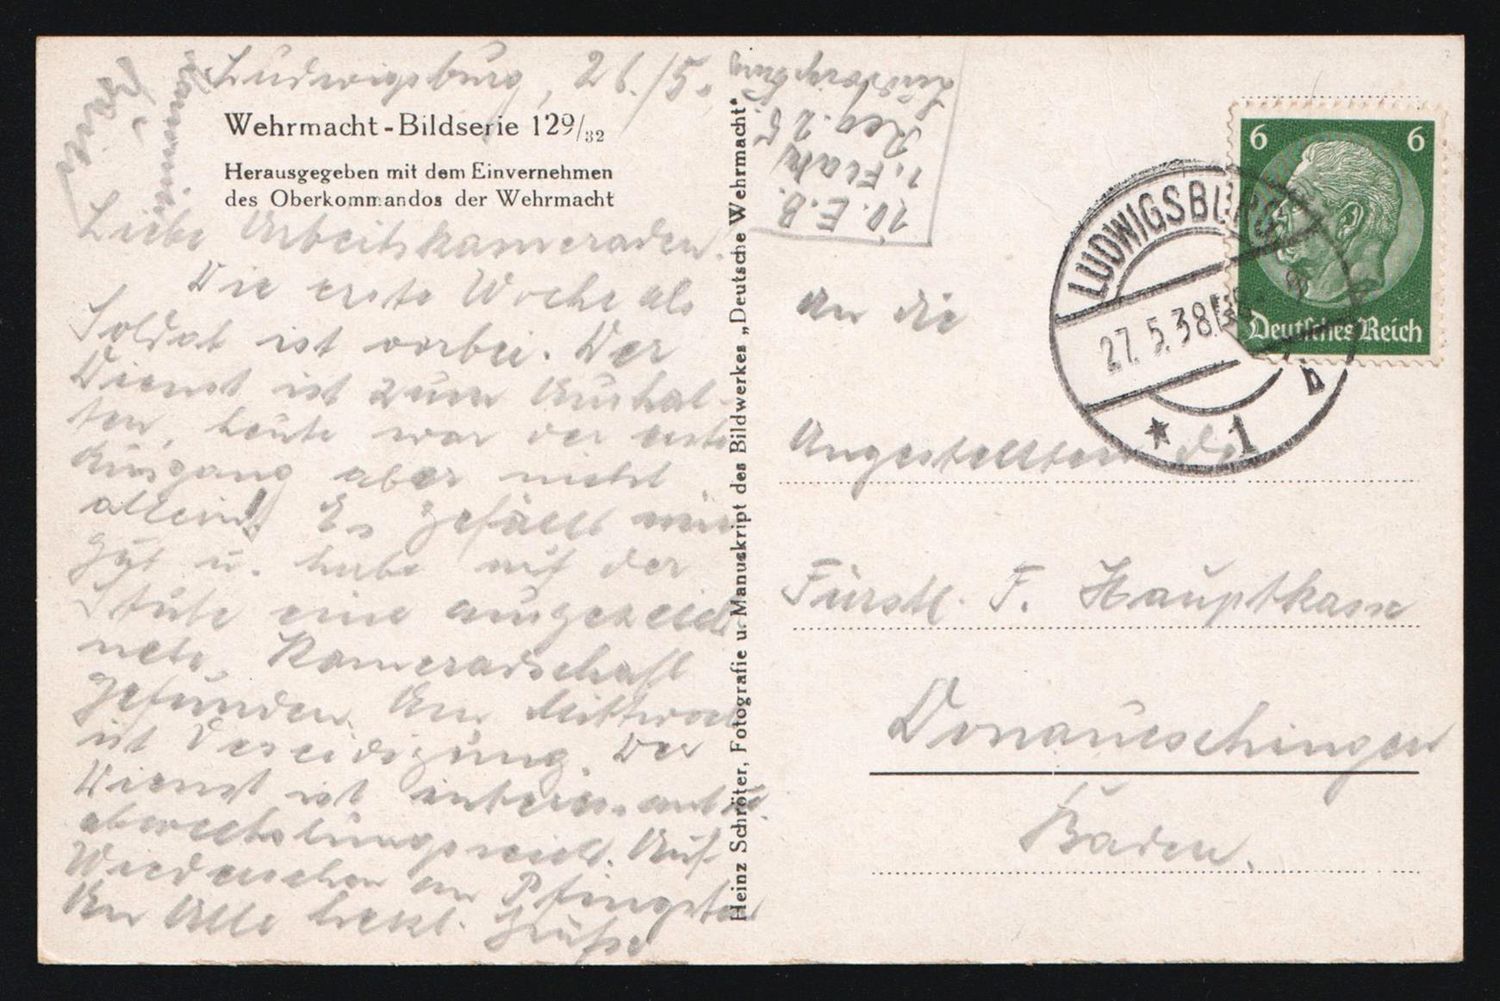 Ludwigsburg, 26./5.
Wehrmacht-Bildserie 129/32
Herausgegeben mit dem Einvernehmen
des Oberkommandos der Wehrmacht
Liebe Arbeitskameraden.
Die erste Woche als
Soldat ist vorbei. Der
Dienst ist zum Aushal-
ten, heute war der erste
Ausgang aber nicht
allein! Es gefällt mir
gut u. habe auf der
Stube eine ausgezeich
nete Kameradschaft
gefunden. Am Mittwoch
ist Vereidigung. Der
Dienst ist interessant u.
abwechslungsreich. Auf
Wiedersehen an Pfingsten
An Alle herzl. Grüße
Heinz Schröter, Fotografie u. Manuskript des Bildwerkes „Deutsche Wehrmacht“
10. E.B.
1. Flak
Reg. 25.
Ludwigsburg
6 6
Deutsches Reich
LUDWIGSBURG
27.5.38
h
* 1
An die
Angestellten der
Fürstl. F. Hauptkasse
Donaueschingen
Baden.